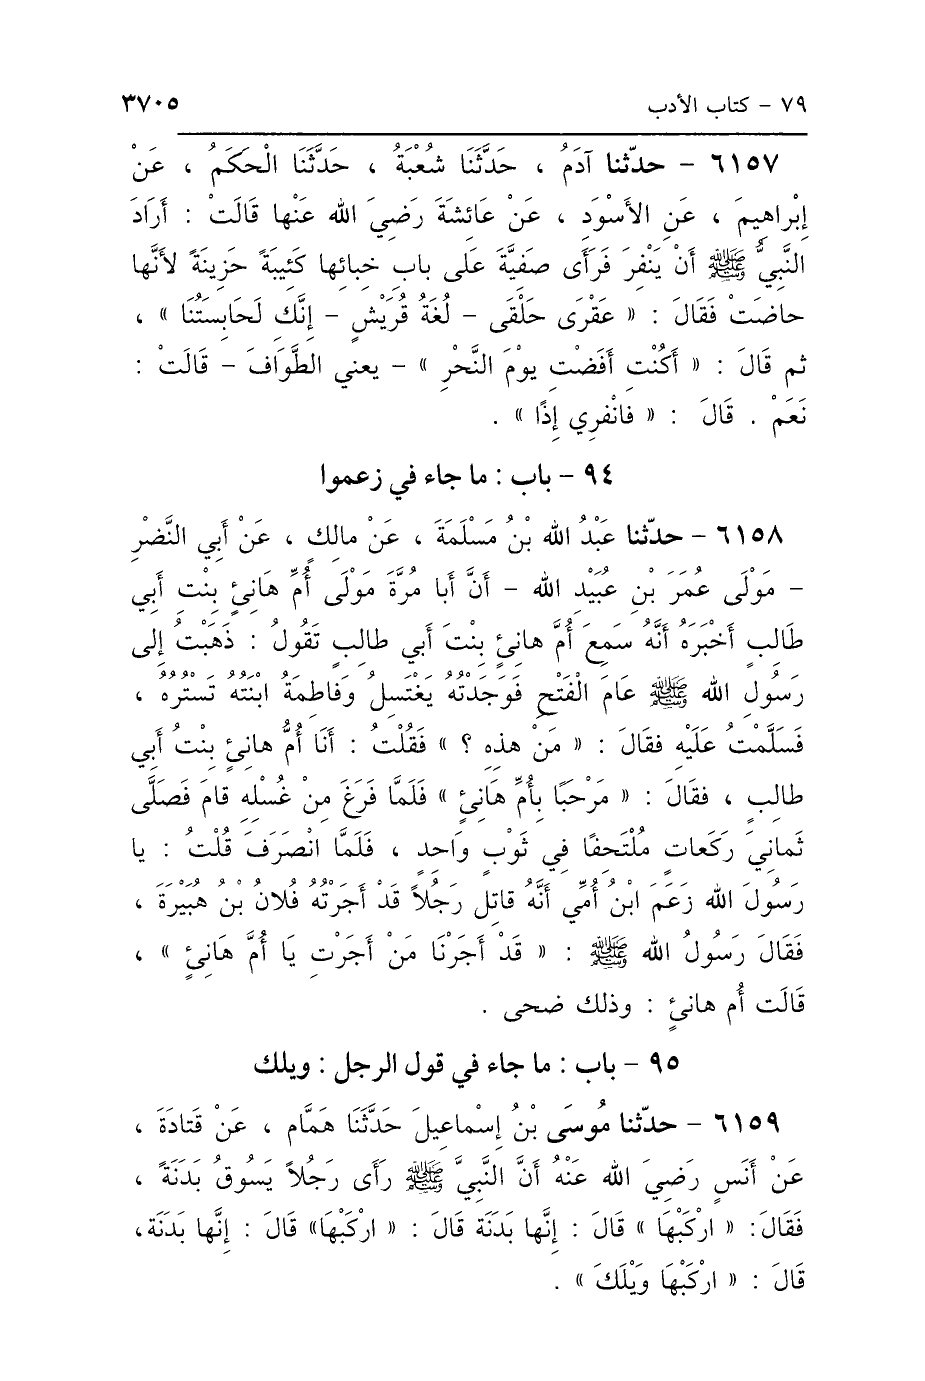 ٧٩ - كتاب الأدب ٣٧٠٥
٦١٥٧ - حدّثنا آدَمُ ، حَدَّثَنَا شُعْبَةُ ، حَدَّثَنَا الْحَكَمُ ، عَنْ
إبْراهِيمَ ، عَنِ الأسْوَدِ ، عَنْ عَائِشَةَ رَضِيَ الله عَنْها قَالَتْ : أَرَادَ
النَّبِيُّ ﷺ أَنْ يَنْفِرَ فَرَأى صَفِيَّةَ عَلى بابِ خبائِها كَئِيبَةً حَزِينَةً لأنَّها
حاضَتْ فَقَالَ : « عَقْرَى حَلْقَى - لُغَةُ قُرَيْشٍ - إنَّكِ لَحَابِسَتُنَا » ،
ثم قَالَ : « أَكُنْتِ أفَضْتِ يوْمَ النَّحْرِ » - يعني الطَّوَافَ - قَالَتْ :
نَعَمْ . قَالَ : « فانْفِري إذًا » .
٩٤ - باب : ما جاء في زعموا
٦١٥٨ - حدّثنا عَبْدُ الله بْنُ مَسْلَمَةَ ، عَنْ مالِكٍ ، عَنْ أبي النَّضْرِ
- مَوْلَى عُمَرَ بْنِ عُبَيْدِ الله - أنَّ أبا مُرَّةَ مَوْلَى أُمِّ هَانِئٍ بِنْتِ أبي
طَالِبٍ أخْبَرَهُ أنَّهُ سَمِعَ أُمَّ هانِئٍ بِنْتَ أبي طالِبٍ تَقُولُ : ذَهَبْتُ إلى
رَسُولِ الله ﷺ عَامَ الْفَتْحِ فَوَجَدْتُهُ يَغْتَسِلُ وَفاطِمَةُ ابْنَتُهُ تَسْتُرُهُ ،
فَسَلَّمْتُ عَلَيْهِ فقالَ : « مَنْ هذِهِ ؟ » فَقُلْتُ : أنَا أُمُّ هانِئٍ بِنْتُ أبي
طالِبٍ ، فقالَ : « مَرْحَبًا بِأُمِّ هَانِئٍ » فَلَمَّا فَرَغَ مِنْ غُسْلِهِ قامَ فَصَلَّى
ثَمانِيَ رَكَعاتٍ مُلْتَحفًا فِي ثَوْبٍ وَاحِدٍ ، فَلَمَّا انْصَرَفَ قُلْتُ : يا
رَسُولَ الله زَعَمَ ابْنُ أُمِّي أنَّهُ قاتِل رَجُلاً قَدْ أجَرْتُهُ فُلانُ بْنُ هُبَيْرَةَ ،
فَقَالَ رَسُولُ الله ﷺ : « قَدْ أجَرْنَا مَنْ أجَرْتِ يَا أُمَّ هَانِئٍ » ،
قَالَت أُم هانئٍ : وذلك ضحى .
٩٥ - باب : ما جاء في قول الرجل : ويلك
٦١٥٩ - حدّثنا مُوسَى بْنُ إسْماعِيلَ حَدَّثَنَا هَمَّام ، عَنْ قَتادَةَ ،
عَنْ أَنَسٍ رَضِيَ الله عَنْهُ أَنَّ النَّبِيَّ ﷺ رَأى رَجُلاً يَسُوقُ بَدَنَةً ،
فَقَالَ: « ارْكَبْهَا » قَالَ : إنَّها بَدَنَة قَالَ : « ارْكَبْهَا» قَالَ : إنَّها بَدَنَة،
قَالَ : « ارْكَبْهَا وَيْلَكَ » .